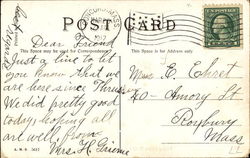 POST CARD
This Space may be used for Correspondence
This Space is for Address only
best regards
Dear Friend
Just a line to let
you know that we
are here since Thurs
We did pretty good
today, hoping all
are well from
Mrs. H. Grieme
Mrs. E. Ehret
40 - Amory St
Roxbury
Mass